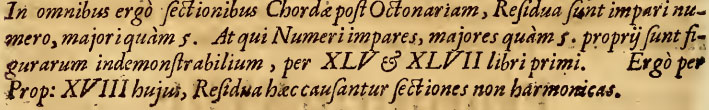 In omnibus ergò ſectionibus Chordæ poſt Octonariam, Reſidua ſunt impari nu-
mero, majori quàm 5. At qui Numeri impares, majores quàm 5. proprij ſunt fi-
gurarum indemonſtrabilium, per XLV & XLVII libri primi. Ergò per
Prop: XVIII hujus, Reſidua hæc cauſantur ſectiones non harmonicas.